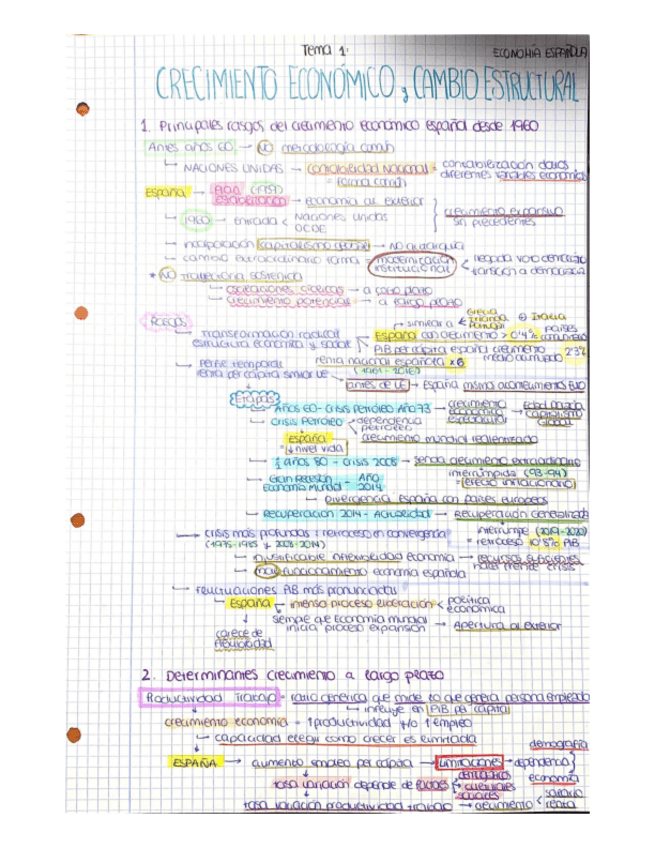 Tema 1:
ECONOMÍA ESPAÑOLA
CRECIMIENTO ECONÓMICO y CAMBIO ESTRUCTURAL
1. Principales rasgos del crecimiento económico español desde 1960
Antes años 60 → NO metodología común
↳ NACIONES UNIDAS → contabilidad Nacional = contabilización datos
= forma común
diferentes variables económicas
España → Plan (1959)
estabilización → economía al exterior
↳ 1960 → entrada < Naciones Unidas
OCDE
crecimiento expansivo
sin precedentes
↳ incorporación capitalismo global → NO autarquía
↳ cambio extraordinario forma = modernización
institucional
transición a democracia
* NO trayectoria sostenida
↳ oscilaciones cíclicas → a corto plazo
↳ crecimiento potencial → a largo plazo
Rasgos
↳ Transformación radical
estructura económica y social
similar a < Grecia
Irlanda
Portugal
⊖ Irlanda
España con crecimiento > 0'4%
países
PIB per cápita español crecimiento
medio acumulado
2'3%
↳ Perfil temporal
renta per cápita similar UE
renta nacional española x6
(1961-2016)
antes de UE → España mismo
Etapas
Años 60 - Crisis Petróleo Año 73 → crecimiento
económico
espectacular
→ Edad dorada
capitalismo
Global
↳ Crisis Petróleo < dependencia
petróleo
crecimiento mundial realentizado
España
= ↓ nivel vida
años 80 - Crisis 2008 → senda crecimiento extraordinario
interrumpida (93-94)
= efecto inflacionario
↳ Gran Recesión - Año
Economía Mundial 2014
↳ Divergencia España con países europeos
↳ Recuperación 2014 - Actualidad → Recuperación generalizada
interrumpe (2019-2020)
= retroceso 10'8% PIB
↳ Crisis más profundas : retroceso en convergencia
(1975-1985 y 2008-2014)
↳ injustificable inflexibilidad economía → recursos suficientes
hacer frente crisis
↳ mal funcionamiento economía española
↳ Fluctuaciones PIB más pronunciadas
↳ España → intenso proceso liberación < política
económica
↓
carece de
flexibilidad
siempre que Economía mundial
inicia proceso expansión → Apertura al exterior
2. Determinantes crecimiento a largo plazo
Productividad Trabajo = ratio genérica que mide lo que genera persona empleada
↳ influye en PIB per cápita
crecimiento economía = ↑ productividad y/o ↑ empleo
↳ capacidad elegir como crecer es limitada
demografía
ESPAÑA → aumento empleo per cápita → Limitaciones → dependencia
economía
tasa variación depende de factores < demográficos
culturales
sociales
tasa variación productividad trabajo → crecimiento < salario
renta